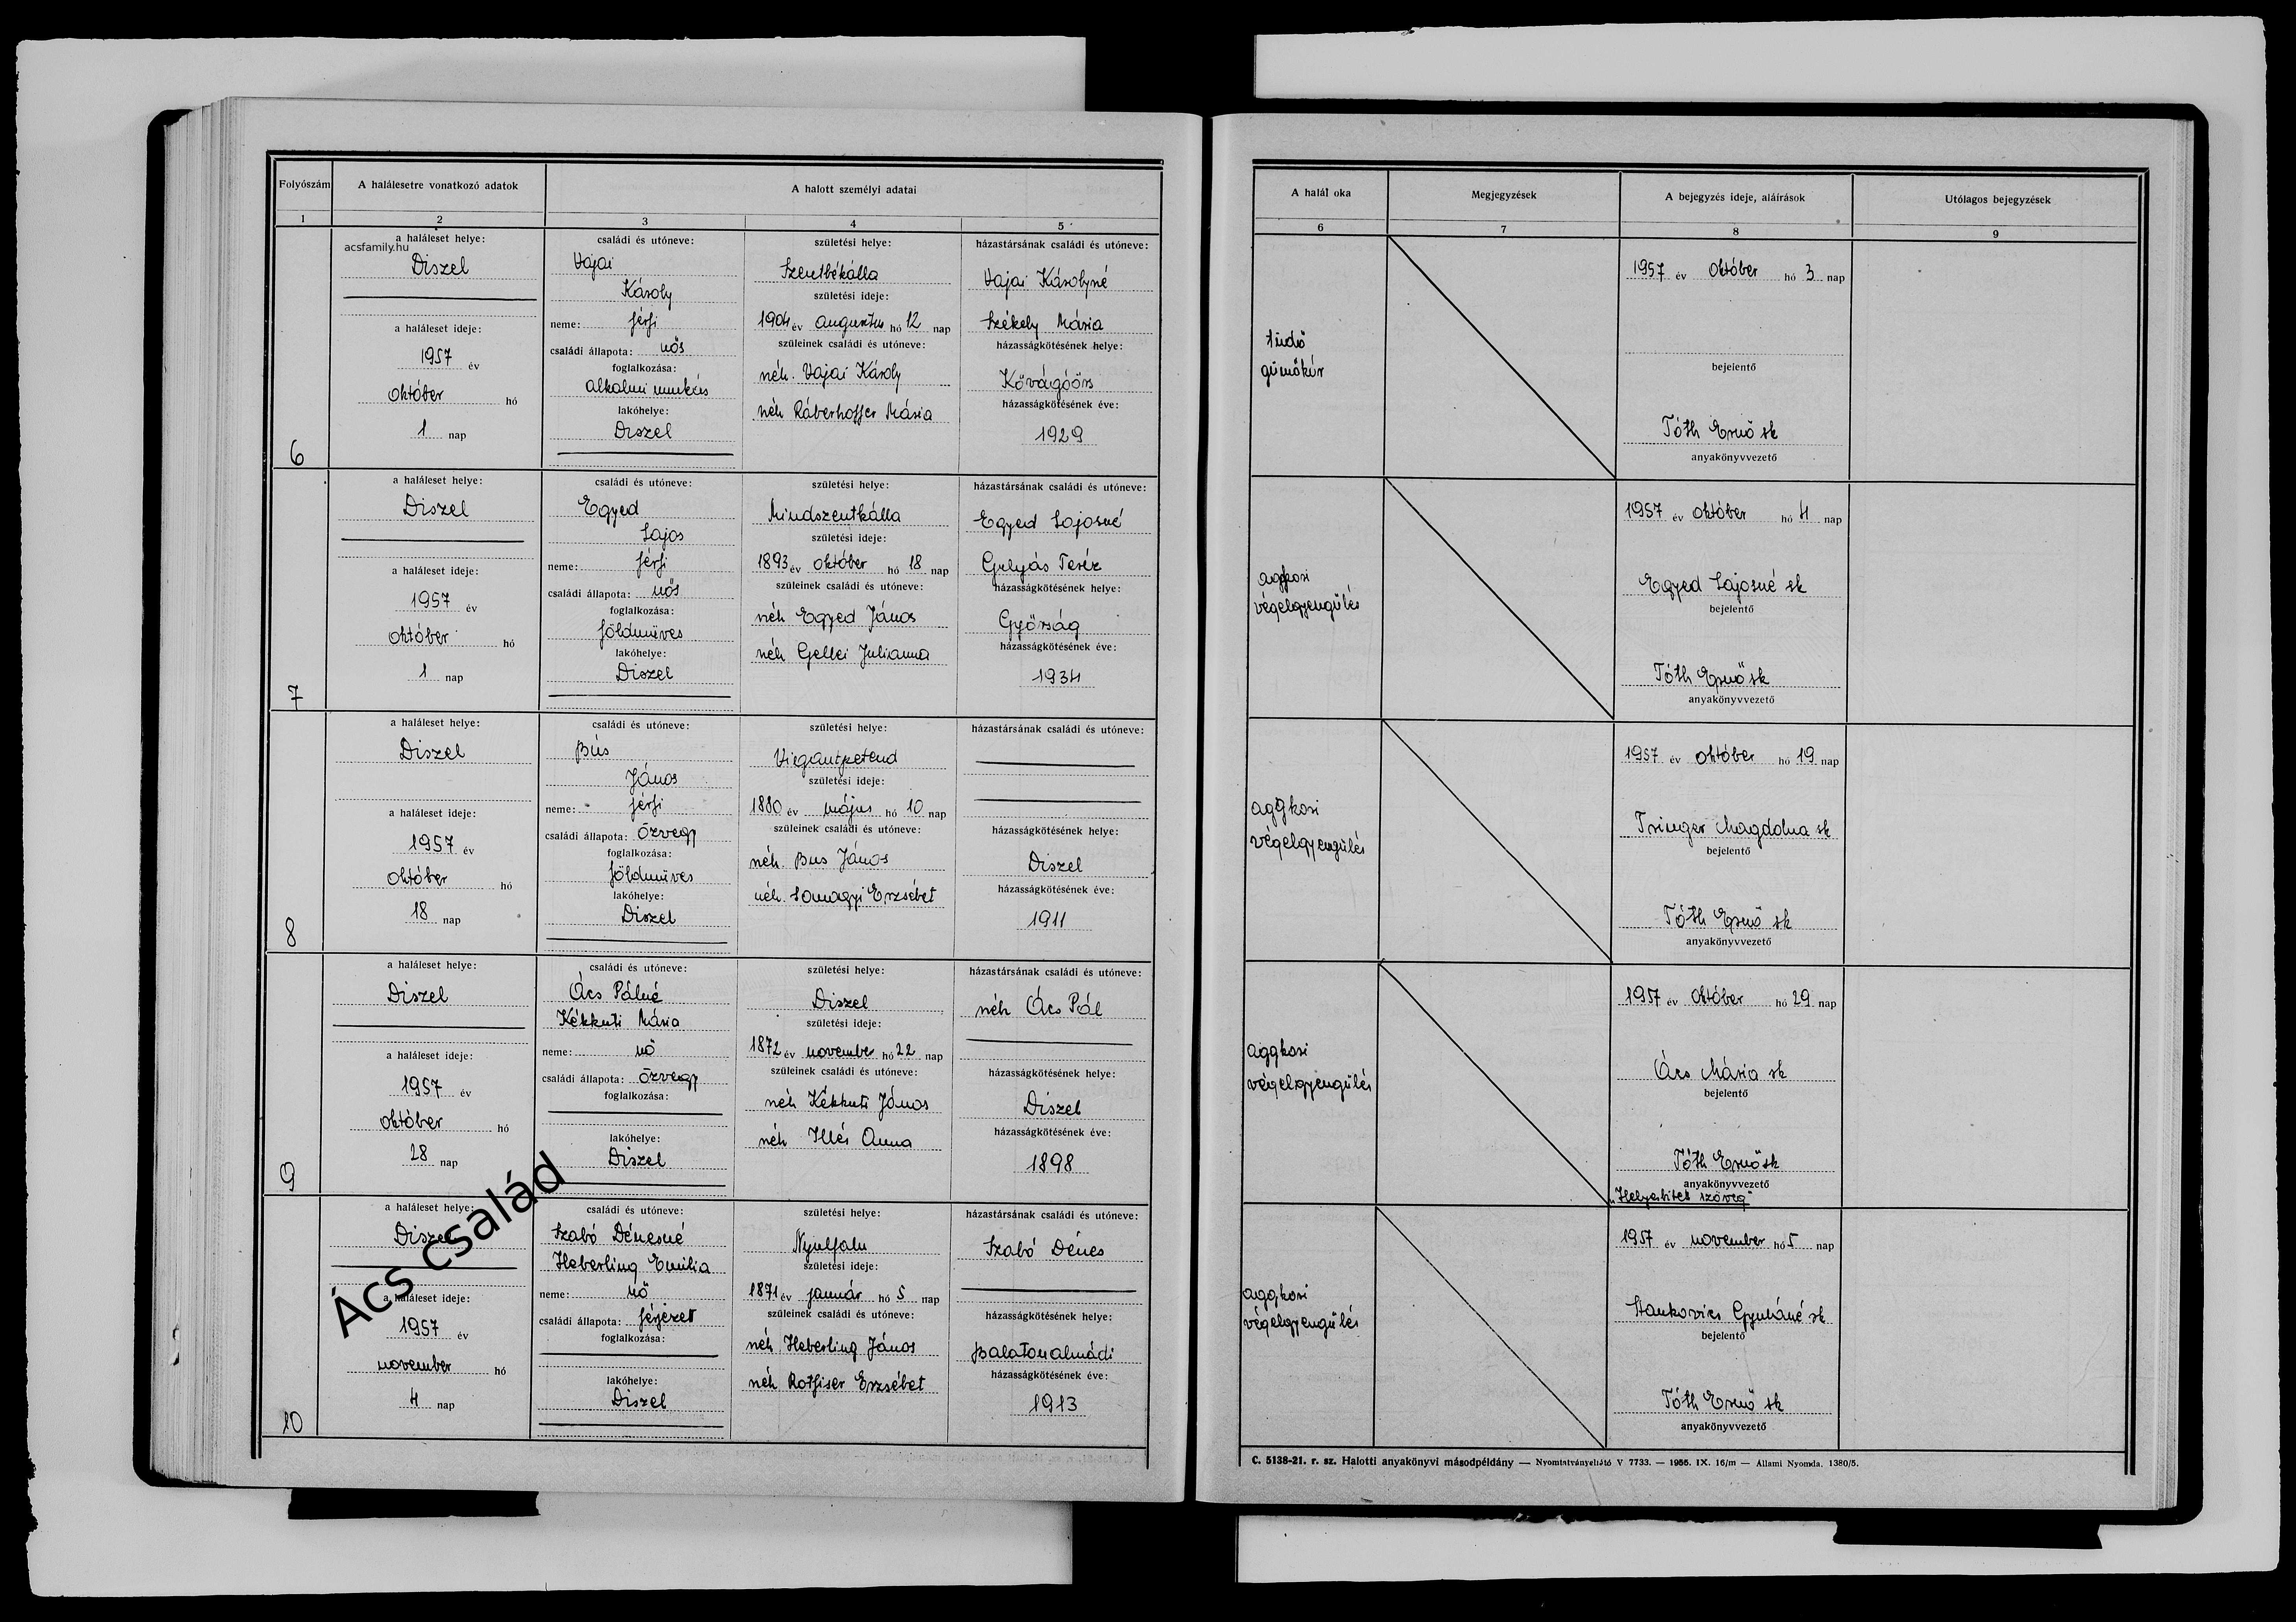 Folyószám
A halálesetre vonatkozó adatok
A halott személyi adatai
1
2
3
4
5
acsfamily.hu
a haláleset helye:
Diszel
a haláleset ideje:
1957 év
október hó
1 nap
6
családi és utóneve:
Vajai
Károly
neme: férfi
családi állapota: nős
foglalkozása:
alkalmi munkás
lakóhelye:
Diszel
születési helye:
Szentbékálla
születési ideje:
1904 év augusztus hó 12 nap
szüleinek családi és utóneve:
néh. Vajai Károly
néh Ráberhoffer Mária
házastársának családi és utóneve:
Vajai Károlyné
Székely Mária
házasságkötésének helye:
Kővágóőrs
házasságkötésének éve:
1929
a haláleset helye:
Diszel
a haláleset ideje:
1957 év
október hó
1 nap
7
családi és utóneve:
Egyed
Lajos
neme: férfi
családi állapota: nős
foglalkozása:
földmüves
lakóhelye:
Diszel
születési helye:
Mindszentkálla
születési ideje:
1893 év október hó 18 nap
szüleinek családi és utóneve:
néh Egyed János
néh Gellei Julianna
házastársának családi és utóneve:
Egyed Lajosné
Gulyás Teréz
házasságkötésének helye:
Győrság
házasságkötésének éve:
1934
a haláleset helye:
Diszel
a haláleset ideje:
1957 év
október hó
18 nap
8
családi és utóneve:
Bús
János
neme: férfi
családi állapota: özvegy
foglalkozása:
földmüves
lakóhelye:
Diszel
születési helye:
Vigantpetend
születési ideje:
1880 év május hó 10 nap
szüleinek családi és utóneve:
néh. Bus János
néh. Somogyi Erzsébet
házastársának családi és utóneve:
házasságkötésének helye:
Diszel
házasságkötésének éve:
1911
a haláleset helye:
Diszel
a haláleset ideje:
1957 év
október hó
28 nap
9
családi és utóneve:
Ács Pálné
Kékkuti Mária
neme: nő
családi állapota: özvegy
foglalkozása:
lakóhelye:
Diszel
születési helye:
Diszel
születési ideje:
1872 év november hó 22 nap
szüleinek családi és utóneve:
néh Kékkuti János
néh Illés Anna
házastársának családi és utóneve:
néh Ács Pál
házasságkötésének helye:
Diszel
házasságkötésének éve:
1898
a haláleset helye:
Diszel
a haláleset ideje:
1957 év
november hó
4 nap
10
Ács család
családi és utóneve:
Szabó Dénesné
Heberling Emilia
neme: nő
családi állapota: férjezett
foglalkozása:
lakóhelye:
Diszel
születési helye:
Nyulfalu
születési ideje:
1871 év január hó 5 nap
szüleinek családi és utóneve:
néh Heberling János
néh Rotfiser Erzsébet
házastársának családi és utóneve:
Szabó Dénes
házasságkötésének helye:
Balatonalmádi
házasságkötésének éve:
1913
A halál oka
Megjegyzések
A bejegyzés ideje, aláírások
Utólagos bejegyzések
6
7
8
9
tüdő
gümőkór
1957 év október hó 3 nap
bejelentő
Tóth Ernő sk
anyakönyvvezető
aggkori
végelgyengülés
1957 év október hó 4 nap
Egyed Lajosné sk
bejelentő
Tóth Ernő sk
anyakönyvvezető
aggkori
végelgyengülés
1957 év október hó 19 nap
Tringer Magdolna sk
bejelentő
Tóth Ernő sk
anyakönyvvezető
aggkori
végelgyengülés
1957 év október hó 29 nap
Ács Mária sk
bejelentő
Tóth Ernő sk
anyakönyvvezető
"Helyesbitett szöveg"
aggkori
végelgyengülés
1957 év november hó 5 nap
Stankovics Gyuláné sk
bejelentő
Tóth Ernő sk
anyakönyvvezető
C. 5138-21. r. sz. Halotti anyakönyvi másodpéldány — Nyomtatványellátó V 7733. — 1956. IX. 16/m — Állami Nyomda. 1380/5.